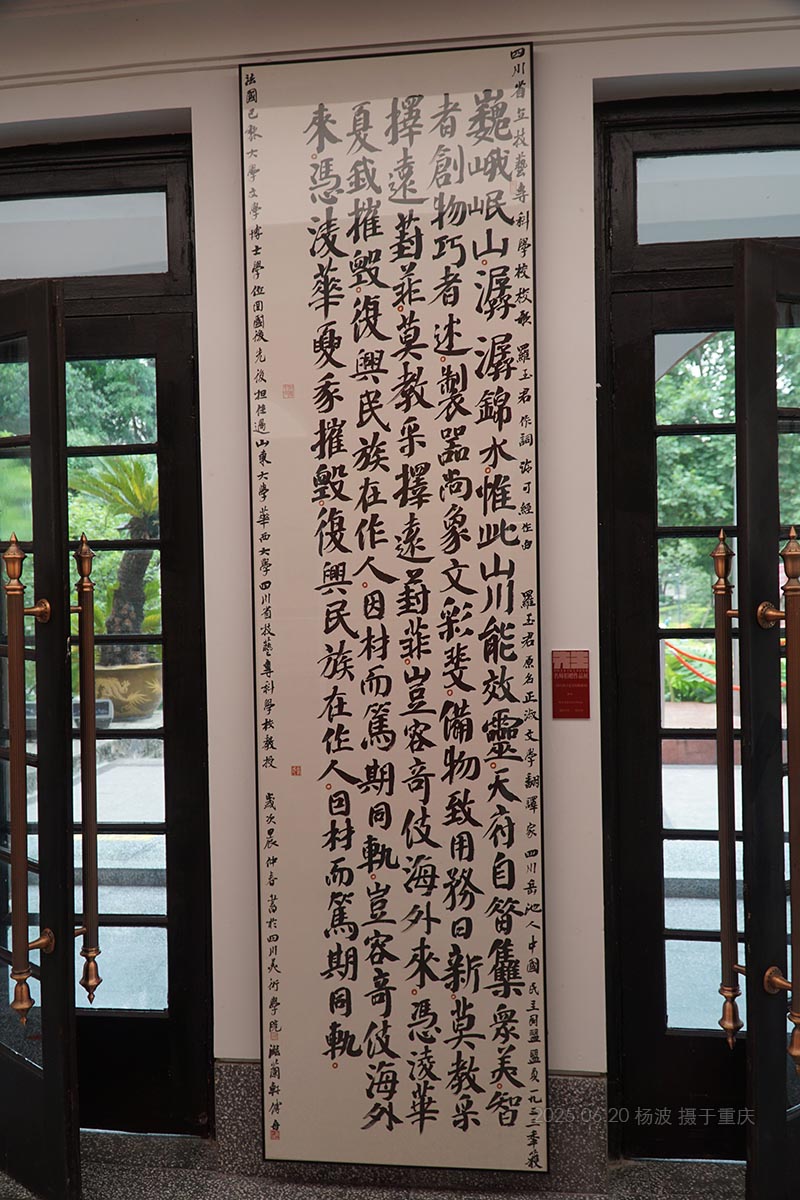 四川省立技藝專科學校校歌 羅玉君作詞 可經作曲 羅玉君原名正淑文學翻譯家四川岳池人中國民主同盟盟員一九三三季獲
巍峨岷山潺潺錦水惟此山川能效靈天府自集衆美智
者創物巧者述製器尚象文彩斐備物致用務日新莫教采
擇遠葑菲莫教采擇遠葑菲豈容奇伎海外來憑淩華
夏我摧毀復興民族在作人因材而篤期同軌豈容奇伎海外
來憑淩華夏我摧毀復興民族在作人因材而篤期同軌
法國巴黎大學文學博士學位回國後先後担任過山東大學華西大學四川省技藝專科學校教授 歲次甲辰仲春書於四川美術學院軒傅舟
2025.06.20 杨波 摄于重庆